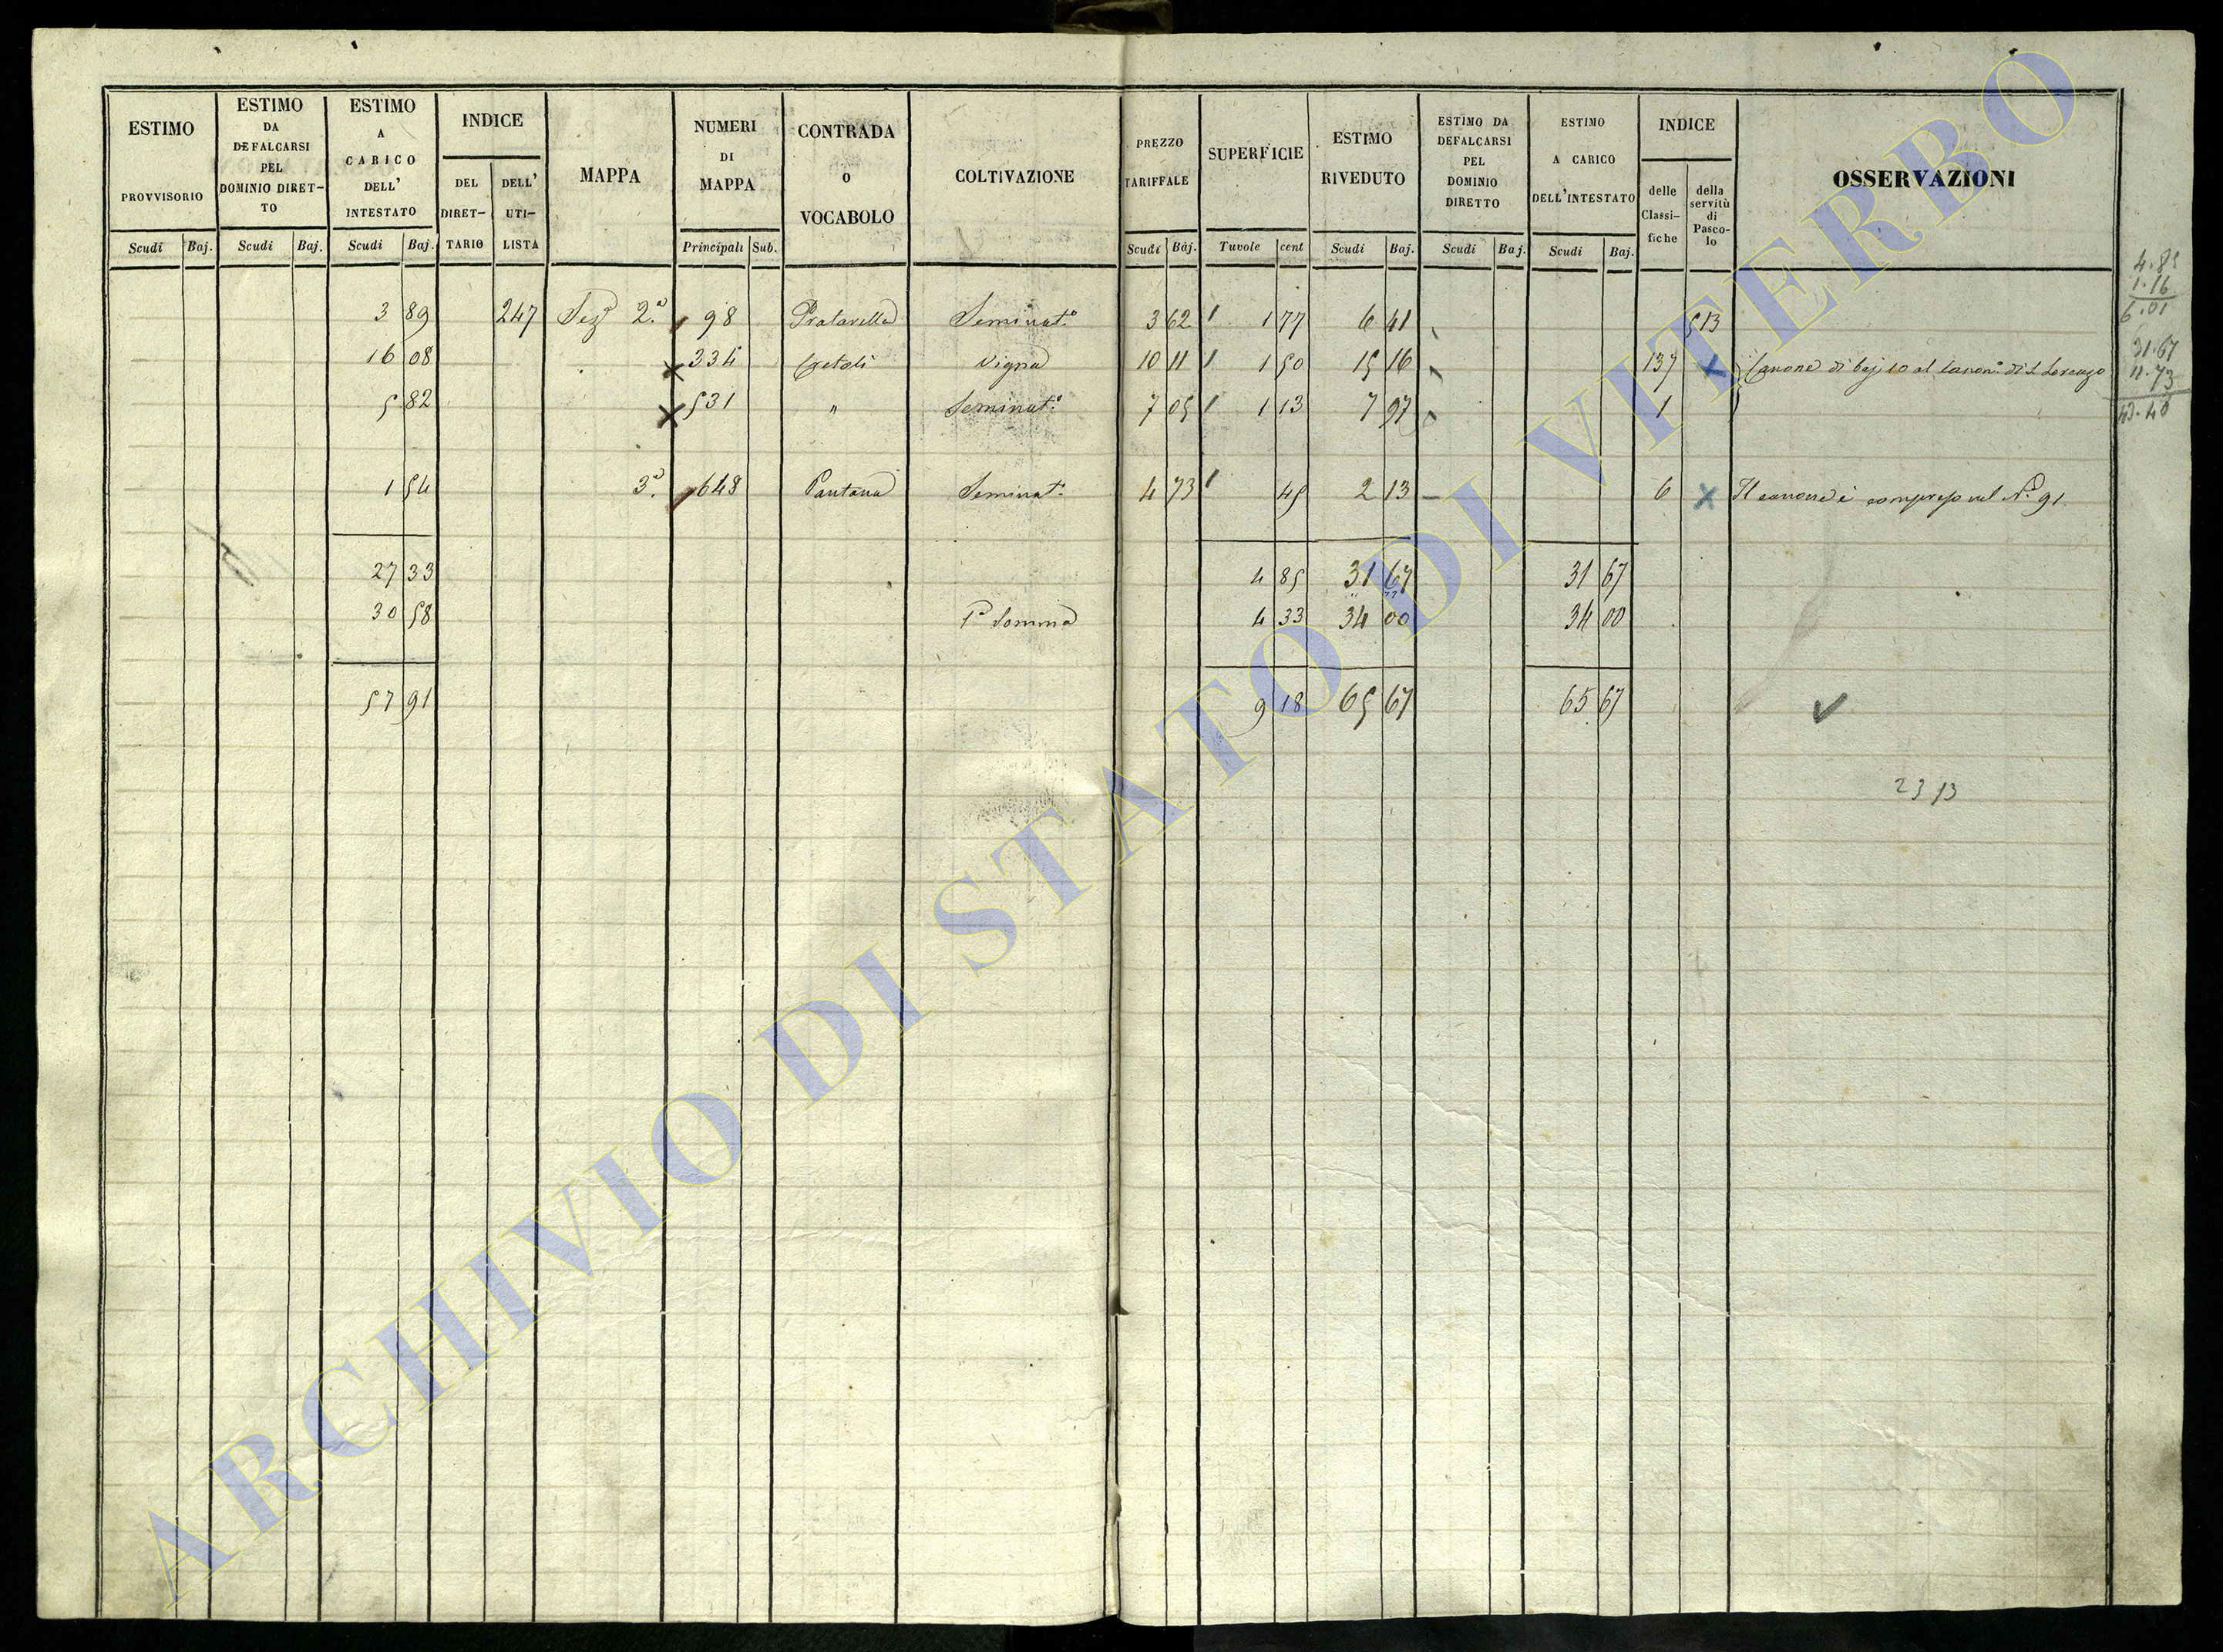 ESTIMO PROVVISORIO Scudi Baj.
ESTIMO DA DEFALCARSI PEL DOMINIO DIRET-TO Scudi Baj.
ESTIMO A CARICO DELL' INTESTATO Scudi Baj.
INDICE DEL DIRET-TARIO DELL' UTI-LISTA
MAPPA
NUMERI DI MAPPA Principali Sub.
CONTRADA o VOCABOLO
COLTIVAZIONE
PREZZO TARIFFALE Scudi Baj.
SUPERFICIE Tavole cent
ESTIMO RIVEDUTO Scudi Baj.
ESTIMO DA DEFALCARSI PEL DOMINIO DIRETTO Scudi Baj.
ESTIMO A CARICO DELL'INTESTATO Scudi Baj.
INDICE delle Classi-fiche della servitù di Pasco-lo
OSSERVAZIONI
3 89 247 Sez. 2.ª 98 Pratarella Seminat.º 3 62 1 77 6 41 513
16 08 334 Vigna 10 11 1 50 15 16 137 Canone di baj 10 al Canon.º di S Lorenzo
5 82 531 " Seminat.º 7 05 1 13 7 97 1
1 54 3.ª 648 Pantana Seminat.º 4 73 45 2 13 6 Il canone è compreso nel N.º 91
27 33 4 85 31 67 31 67
30 58 1ª Somma 4 33 34 00 34 00
57 91 9 18 65 67 65 67
23 13
4.85
1.16
6.01
31.67
11.73
43.40
ARCHIVIO DI STATO DI VITERBO